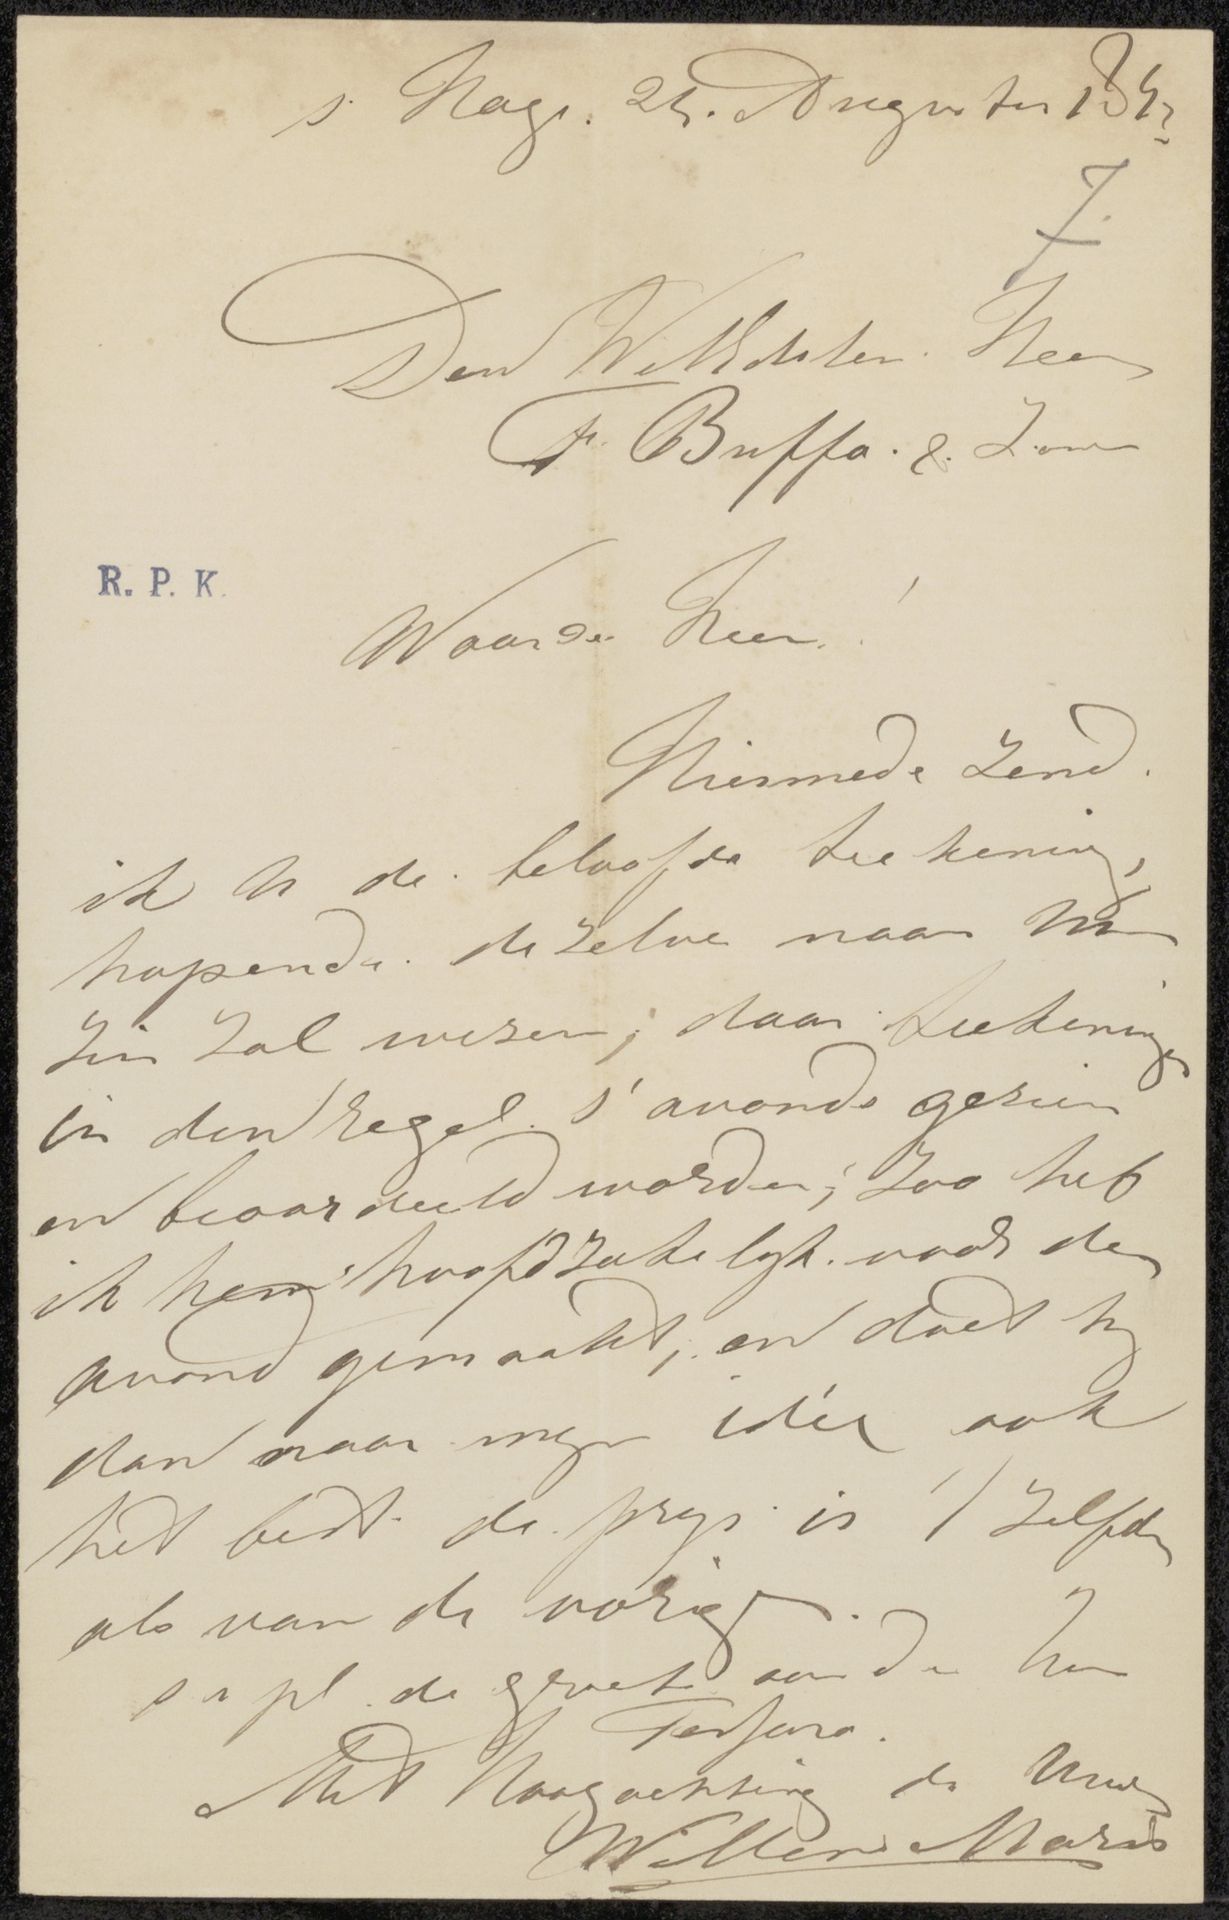 s' Hage. 25. Augustus
7.
Den WelEdelen Heer
F. Buffa. & Zonen
R. P. K.
Waarde Heer!
Hiermede Zend.
ik U de beloofde teekening,
hopende dezelve naar Uw
Zin Zal wezen, daar teekeningen
in den regel s'avonds gezien
en beoordeeld worden, Zoo heb
ik hem hoofdzakelyk voor den
avond gemaakt, en doet hy
dan naar myn idée ook
het best. de prys is 't Zelfde
als van de vorige.
pl. de groet aan den heer
Met Hoogachting de Uwe
Willem Maris